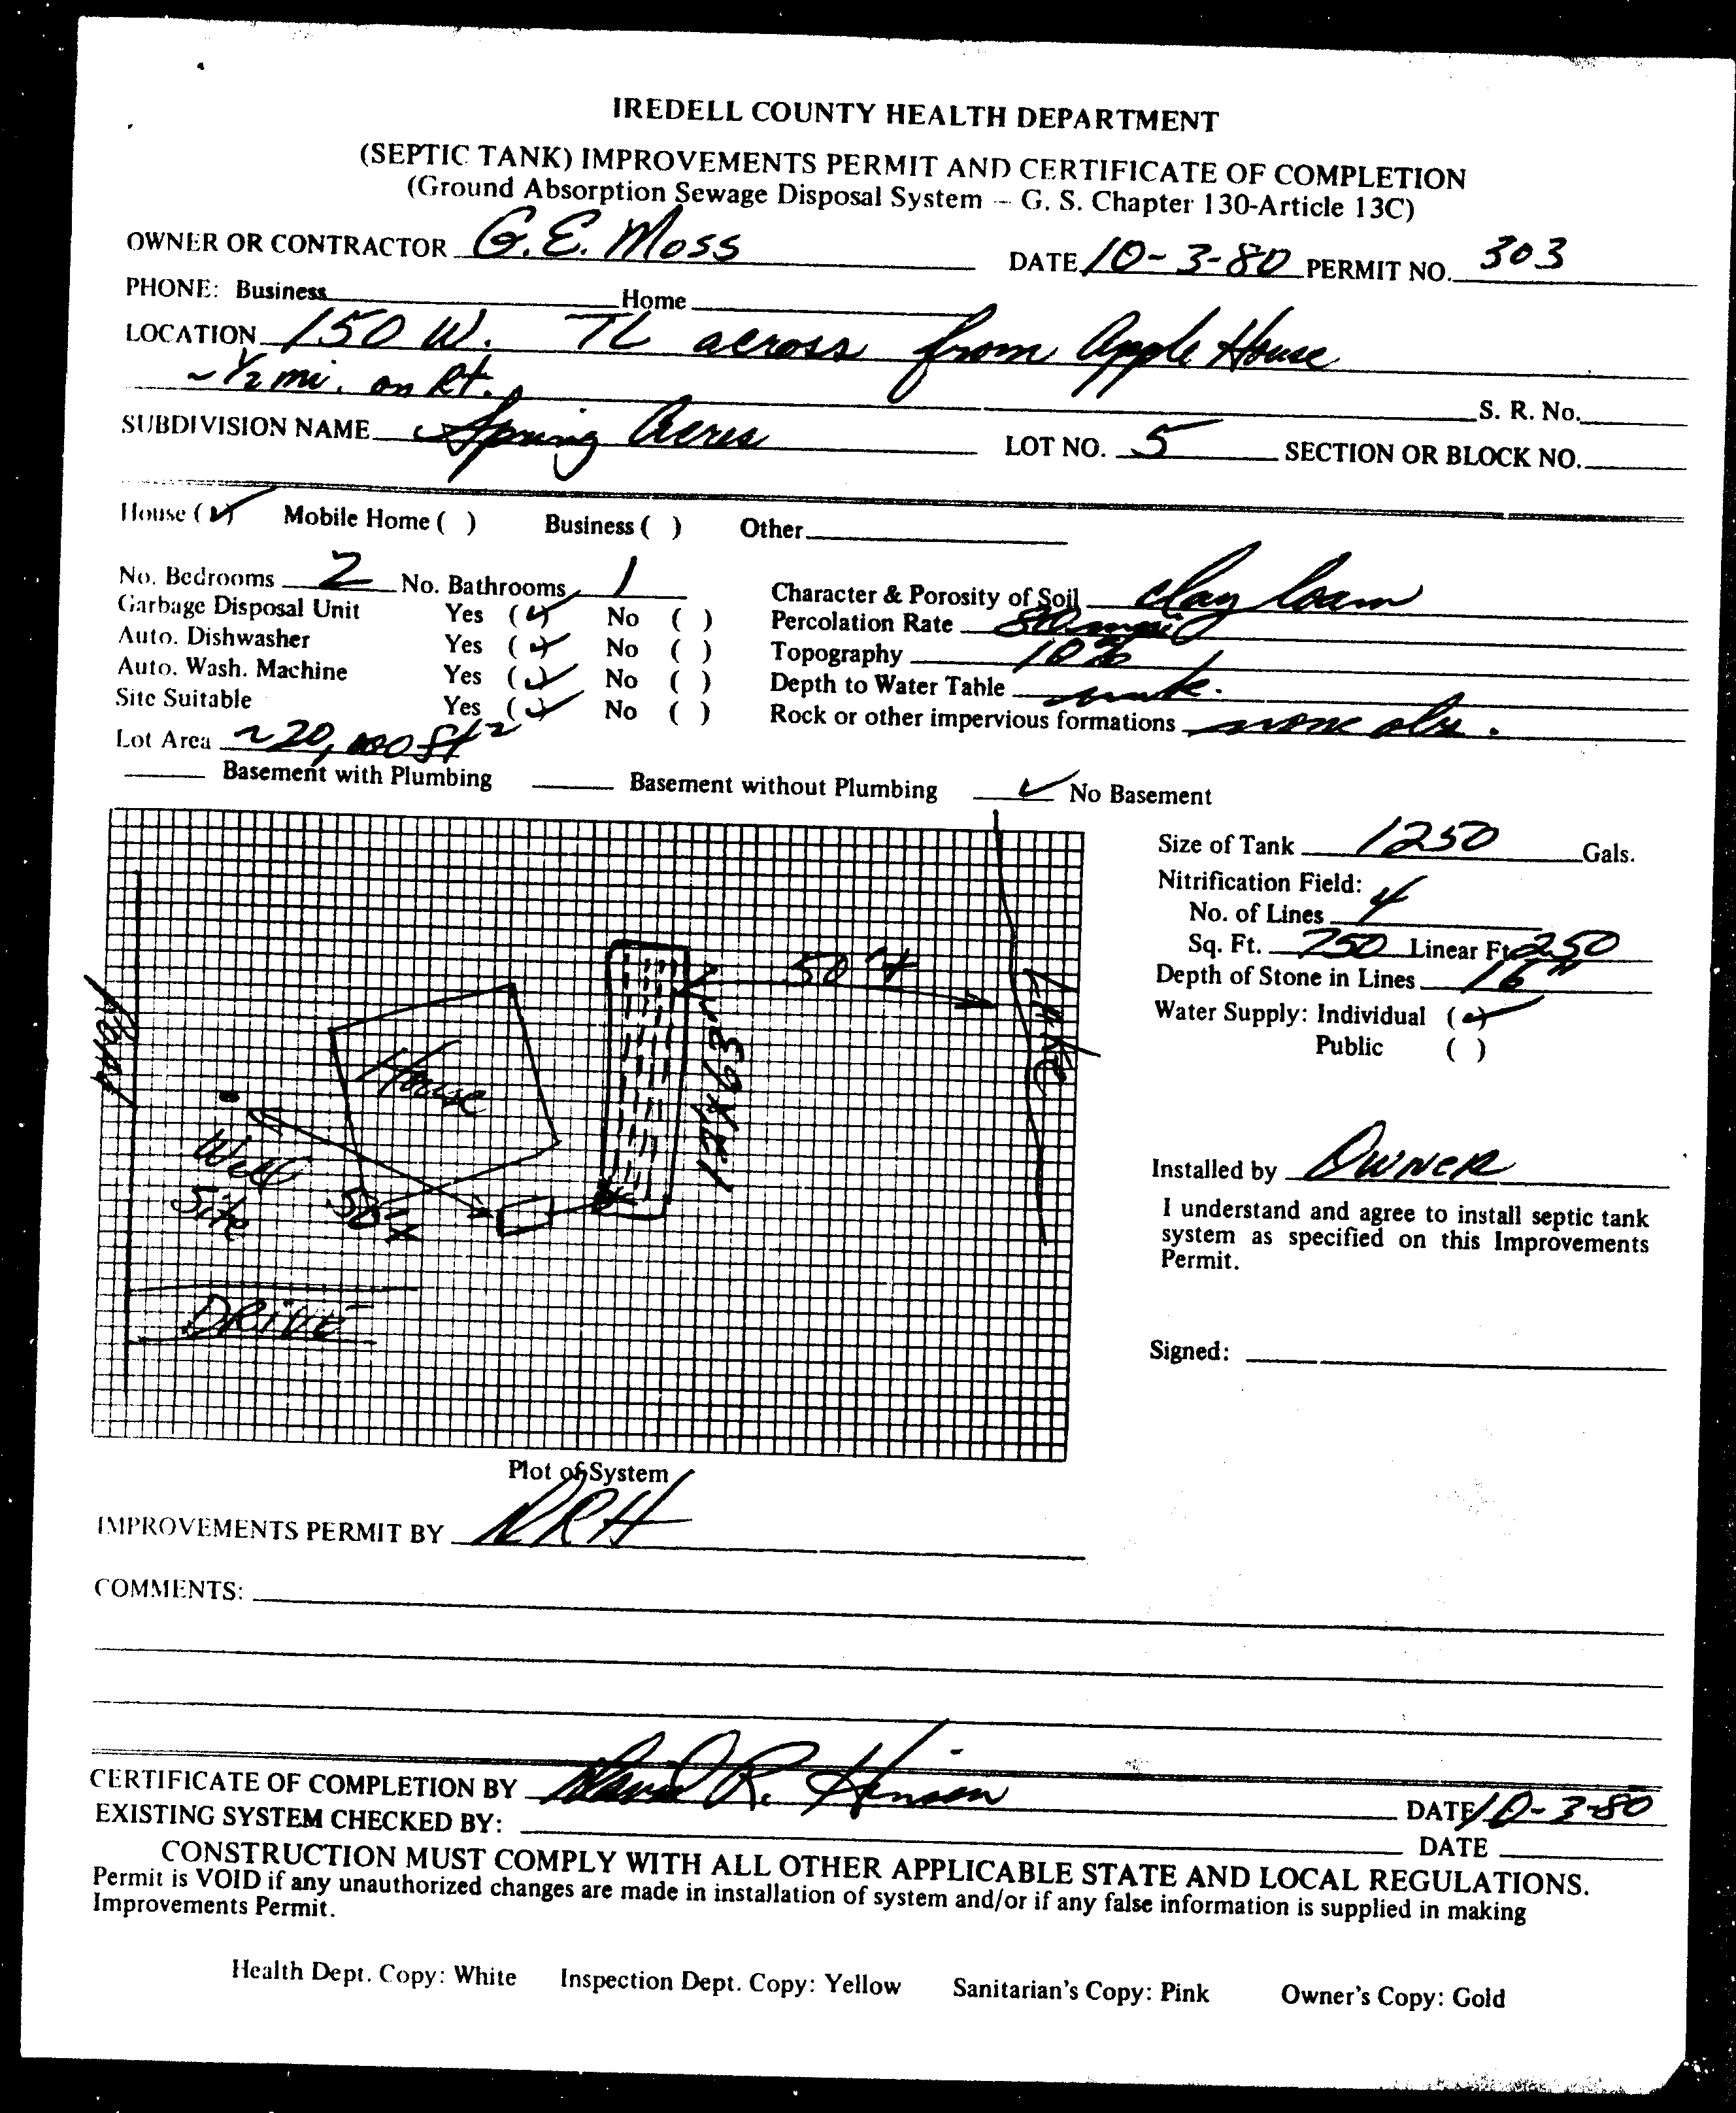 IREDELL COUNTY HEALTH DEPARTMENT
(SEPTIC TANK) IMPROVEMENTS PERMIT AND CERTIFICATE OF COMPLETION
(Ground Absorption Sewage Disposal System – G. S. Chapter 130-Article 13C)
OWNER OR CONTRACTOR G.E. Moss DATE 10-3-80 PERMIT NO. 303
PHONE: Business Home
LOCATION 150 W. TL across from Apple House
~ 1/2 mi. on Rt. S. R. No.
SUBDIVISION NAME Spring Acres LOT NO. 5 SECTION OR BLOCK NO.
House (✓) Mobile Home ( ) Business ( ) Other
No. Bedrooms 2 No. Bathrooms 1 Character & Porosity of Soil clay loam
Garbage Disposal Unit Yes (✓) No ( ) Percolation Rate
Auto. Dishwasher Yes (✓) No ( ) Topography 10%
Auto. Wash. Machine Yes (✓) No ( ) Depth to Water Table
Site Suitable Yes (✓) No ( ) Rock or other impervious formations none obs.
Lot Area ~20,000 ft²
Basement with Plumbing Basement without Plumbing ✓ No Basement
Size of Tank 1250 Gals.
Nitrification Field:
No. of Lines 4
Sq. Ft. 750 Linear Ft. 250
Depth of Stone in Lines 16"
Water Supply: Individual (✓)
Public ( )
50'+
LAKE
House
Well
Site
50'+
DRIVE
Installed by Owner
I understand and agree to install septic tank
system as specified on this Improvements
Permit.
Signed:
Plot of System
IMPROVEMENTS PERMIT BY DRH
COMMENTS:
CERTIFICATE OF COMPLETION BY David R. Hinson DATE 10-3-80
EXISTING SYSTEM CHECKED BY: DATE
CONSTRUCTION MUST COMPLY WITH ALL OTHER APPLICABLE STATE AND LOCAL REGULATIONS.
Permit is VOID if any unauthorized changes are made in installation of system and/or if any false information is supplied in making
Improvements Permit.
Health Dept. Copy: White Inspection Dept. Copy: Yellow Sanitarian's Copy: Pink Owner's Copy: Gold